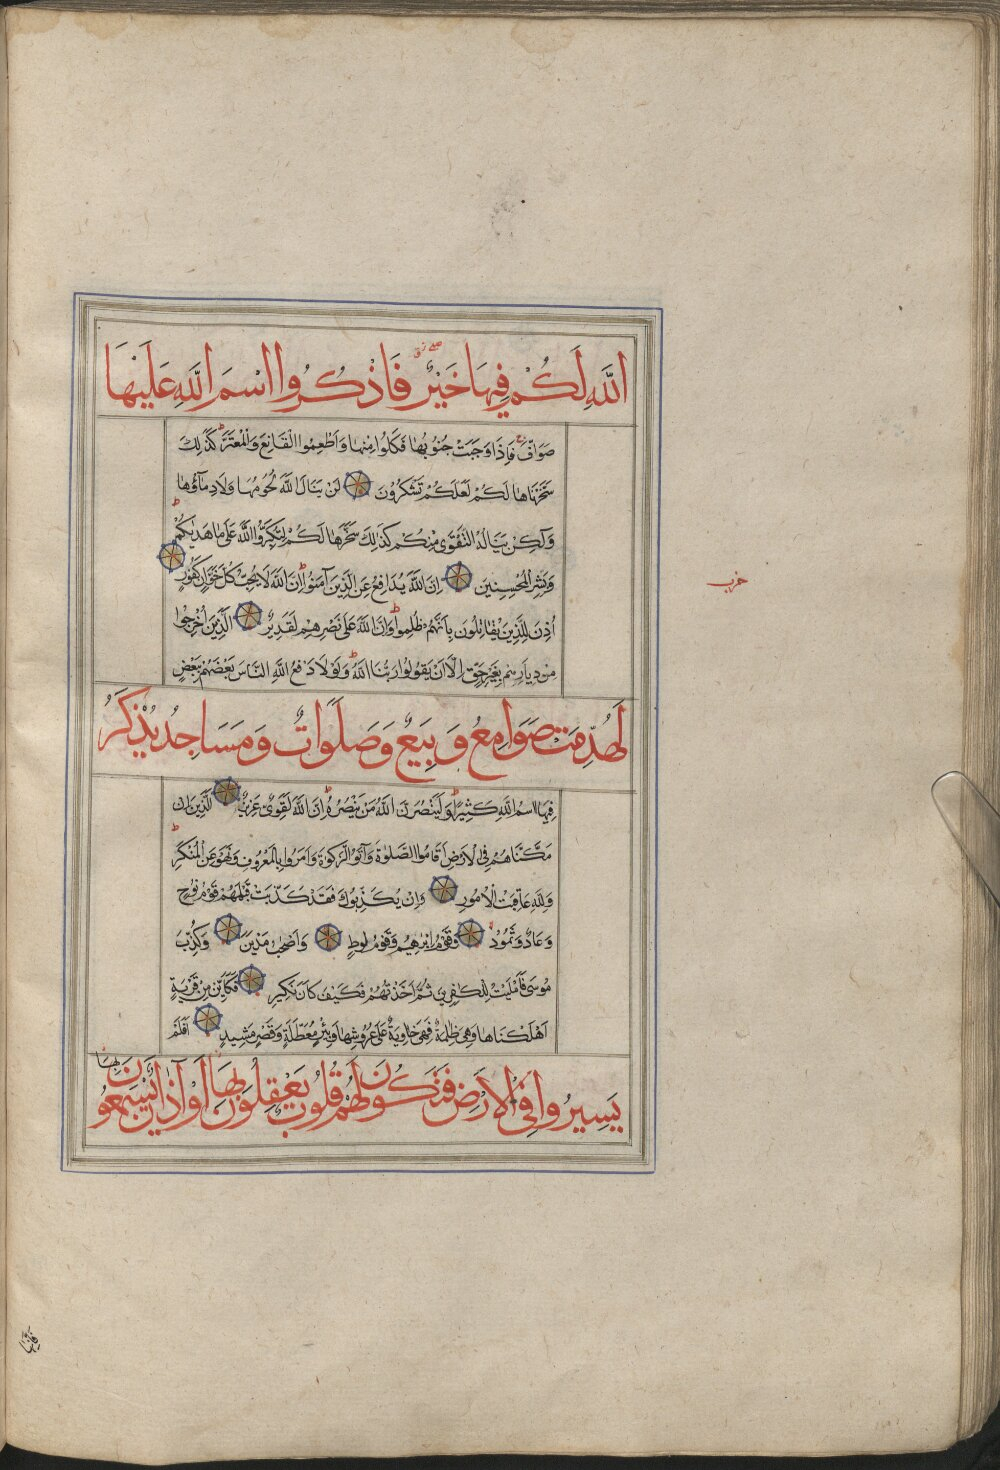 اللَّهِ لَكُمْ فِيهَا خَيْرٌ فَاذْكُرُوا اسْمَ اللَّهِ عَلَيْهَا
صَوَافَّ فَإِذَا وَجَبَتْ جُنُوبُهَا فَكُلُوا مِنْهَا وَأَطْعِمُوا الْقَانِعَ وَالْمُعْتَرَّ كَذَلِكَ
سَخَّرْنَاهَا لَكُمْ لَعَلَّكُمْ تَشْكُرُونَ لَنْ يَنَالَ اللَّهَ لُحُومُهَا وَلَا دِمَآؤُهَا
وَلَكِنْ يَنَالُهُ التَّقْوَى مِنْكُمْ كَذَلِكَ سَخَّرَهَا لَكُمْ لِتُكَبِّرُوا اللَّهَ عَلَى مَا هَدَيٰكُمْ
وَبَشِّرِ الْمُحْسِنِينَ إِنَّ اللَّهَ يُدَافِعُ عَنِ الَّذِينَ آمَنُوا إِنَّ اللَّهَ لَا يُحِبُّ كُلَّ خَوَّانٍ كَفُورٍ
أُذِنَ لِلَّذِينَ يُقَاتَلُونَ بِأَنَّهُمْ ظُلِمُوا وَإِنَّ اللَّهَ عَلَى نَصْرِهِمْ لَقَدِيرٌ الَّذِينَ أُخْرِجُوا
مِنْ دِيَارِهِمْ بِغَيْرِ حَقٍّ إِلَّا أَنْ يَقُولُوا رَبُّنَا اللَّهُ وَلَوْلَا دَفْعُ اللَّهِ النَّاسَ بَعْضَهُمْ بِبَعْضٍ
لَهُدِّمَتْ صَوَامِعُ وَبِيَعٌ وَصَلَوَاتٌ وَمَسَاجِدُ يُذْكَرُ
فِيهَا اسْمُ اللَّهِ كَثِيرًا وَلَيَنْصُرَنَّ اللَّهُ مَنْ يَنْصُرُهُ إِنَّ اللَّهَ لَقَوِيٌّ عَزِيزٌ الَّذِينَ إِنْ
مَكَّنَّاهُمْ فِي الْأَرْضِ أَقَامُوا الصَّلٰوةَ وَآتَوُا الزَّكٰوةَ وَأَمَرُوا بِالْمَعْرُوفِ وَنَهَوْا عَنِ الْمُنْكَرِ
وَلِلَّهِ عَاقِبَتُ الْأُمُورِ وَإِنْ يُكَذِّبُوكَ فَقَدْ كَذَّبَتْ قَبْلَهُمْ قَوْمُ نُوحٍ
وَعَادٌ وَثَمُودُ وَقَوْمُ إِبْرٰهِيمَ وَقَوْمُ لُوطٍ وَأَصْحٰبُ مَدْيَنَ وَكُذِّبَ
مُوسَى فَأَمْلَيْتُ لِلْكَافِرِينَ ثُمَّ أَخَذْتُهُمْ فَكَيْفَ كَانَ نَكِيرِ فَكَأَيِّنْ مِنْ قَرْيَةٍ
أَهْلَكْنَاهَا وَهِيَ ظَالِمَةٌ فَهِيَ خَاوِيَةٌ عَلَى عُرُوشِهَا وَبِئْرٍ مُعَطَّلَةٍ وَقَصْرٍ مَشِيدٍ أَفَلَمْ
يَسِيرُوا فِي الْأَرْضِ فَتَكُونَ لَهُمْ قُلُوبٌ يَعْقِلُونَ بِهَا أَوْ آذَانٌ يَسْمَعُونَ بِهَا
حزب
فَإِنَّهَا